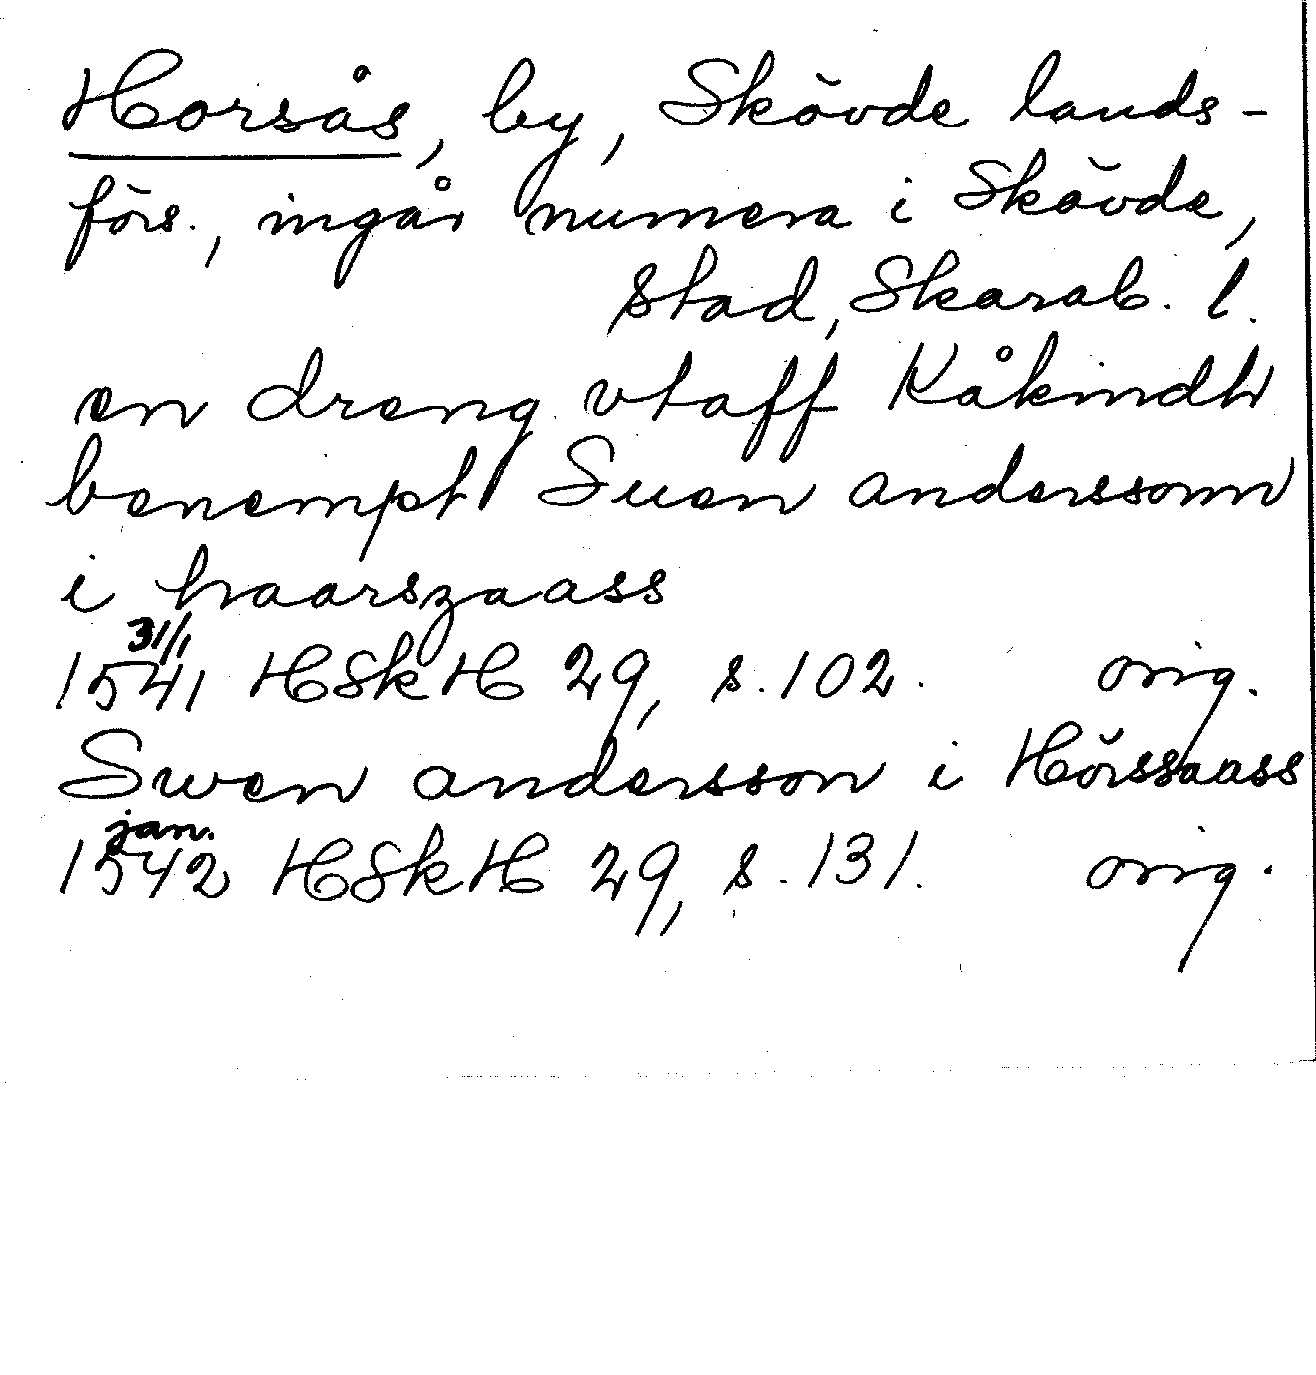 Horsås, by, Skövde lands-
förs., ingår numera i Skövde,
stad, Skarab. l.
en dreng vtaff Kåkindh
benempt Suen anderssonn
i haarszaass
31/1
1541 HSkH 29, s. 102. orig.
Swen andersson i Hörssaass
jan.
1542 HSkH 29, s. 131. orig.